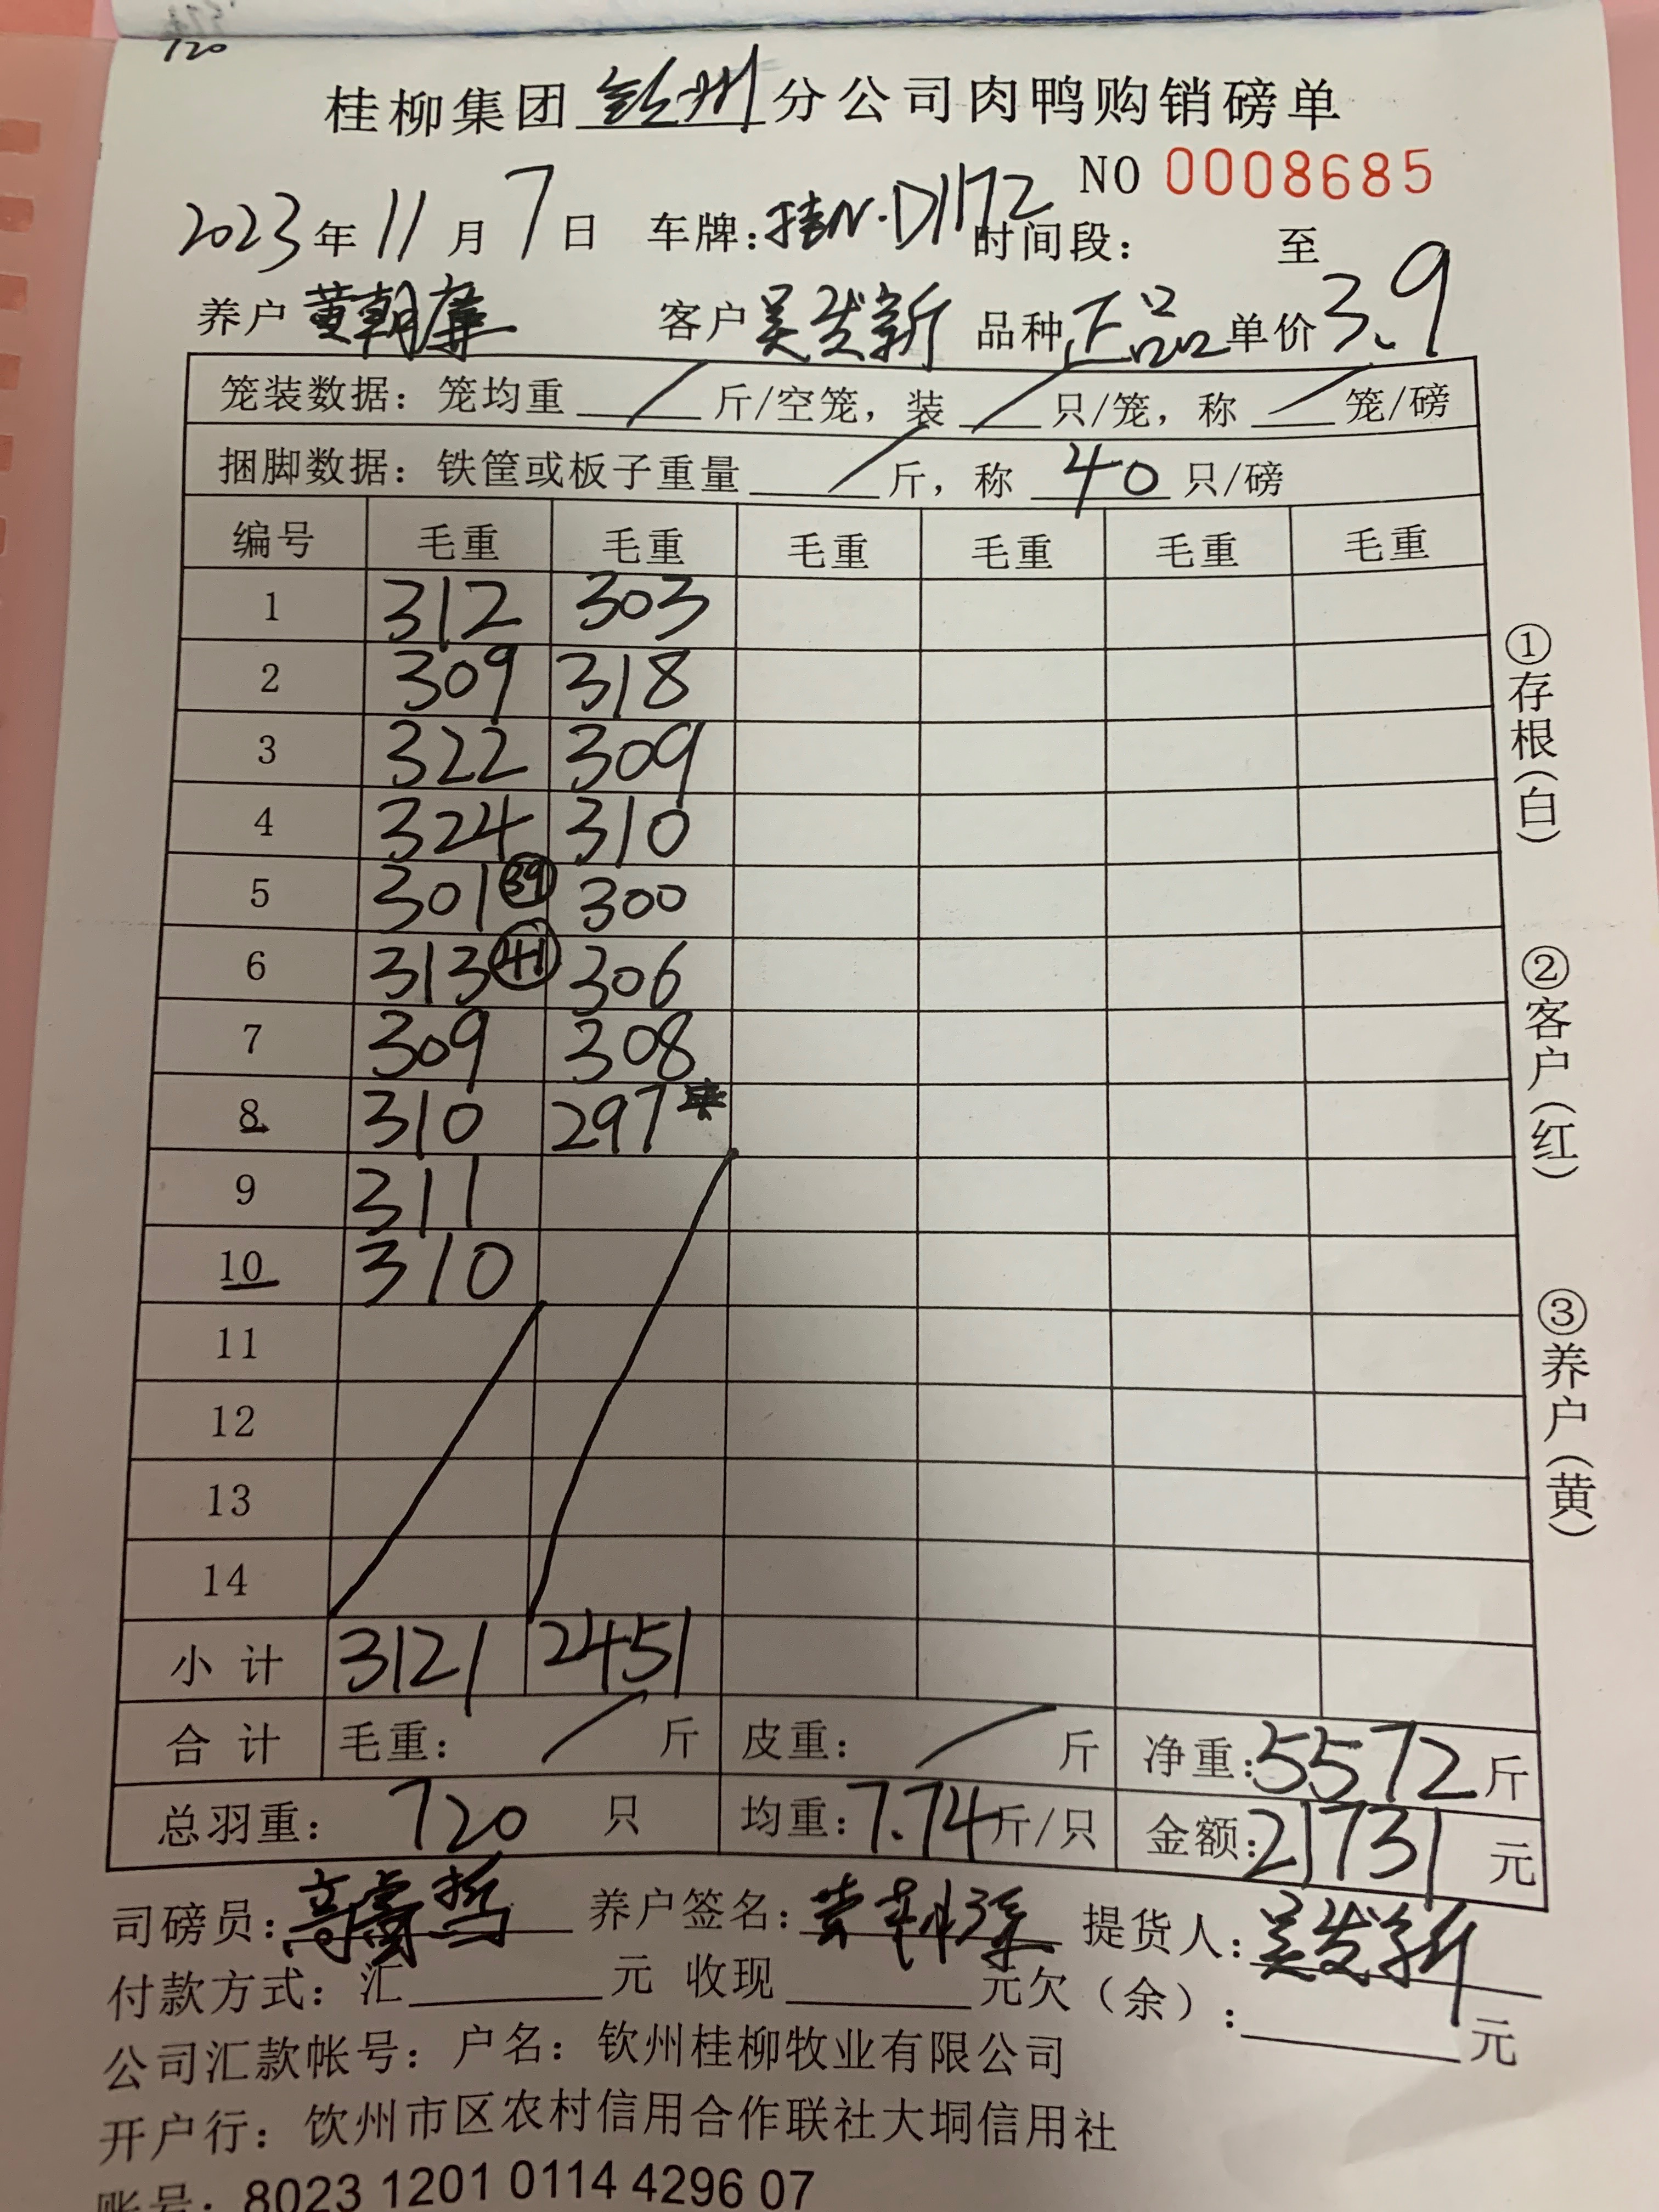 720
桂柳集团钦州分公司肉鸭购销磅单
NO 0008685
2023年11月7日 车牌:桂N·D1172 时间段: 至
养户 黄朝 客户 吴发新 品种 正品 单价 3.9
笼装数据: 笼均重 / 斤/空笼, 装 / 只/笼, 称 / 笼/磅
捆脚数据: 铁筐或板子重量 / 斤, 称 40 只/磅
编号 毛重 毛重 毛重 毛重 毛重 毛重
1 312 303
2 309 318
3 322 309
4 324 310
5 301 39 300
6 313 41 306
7 309 308
8 310 297
9 311
10 310
11
12
13
14
小计 3121 2451
合计 毛重: / 斤 皮重: / 斤 净重: 5572 斤
总羽重: 720 只 均重: 7.74 斤/只 金额: 21731 元
①存根(白)
②客户(红)
③养户(黄)
司磅员: 养户签名: 提货人: 吴发新
付款方式: 汇 元 收现 元欠(余): 元
公司汇款帐号: 户名: 钦州桂柳牧业有限公司
开户行: 钦州市区农村信用合作联社大垌信用社
账号: 8023 1201 0114 4296 07